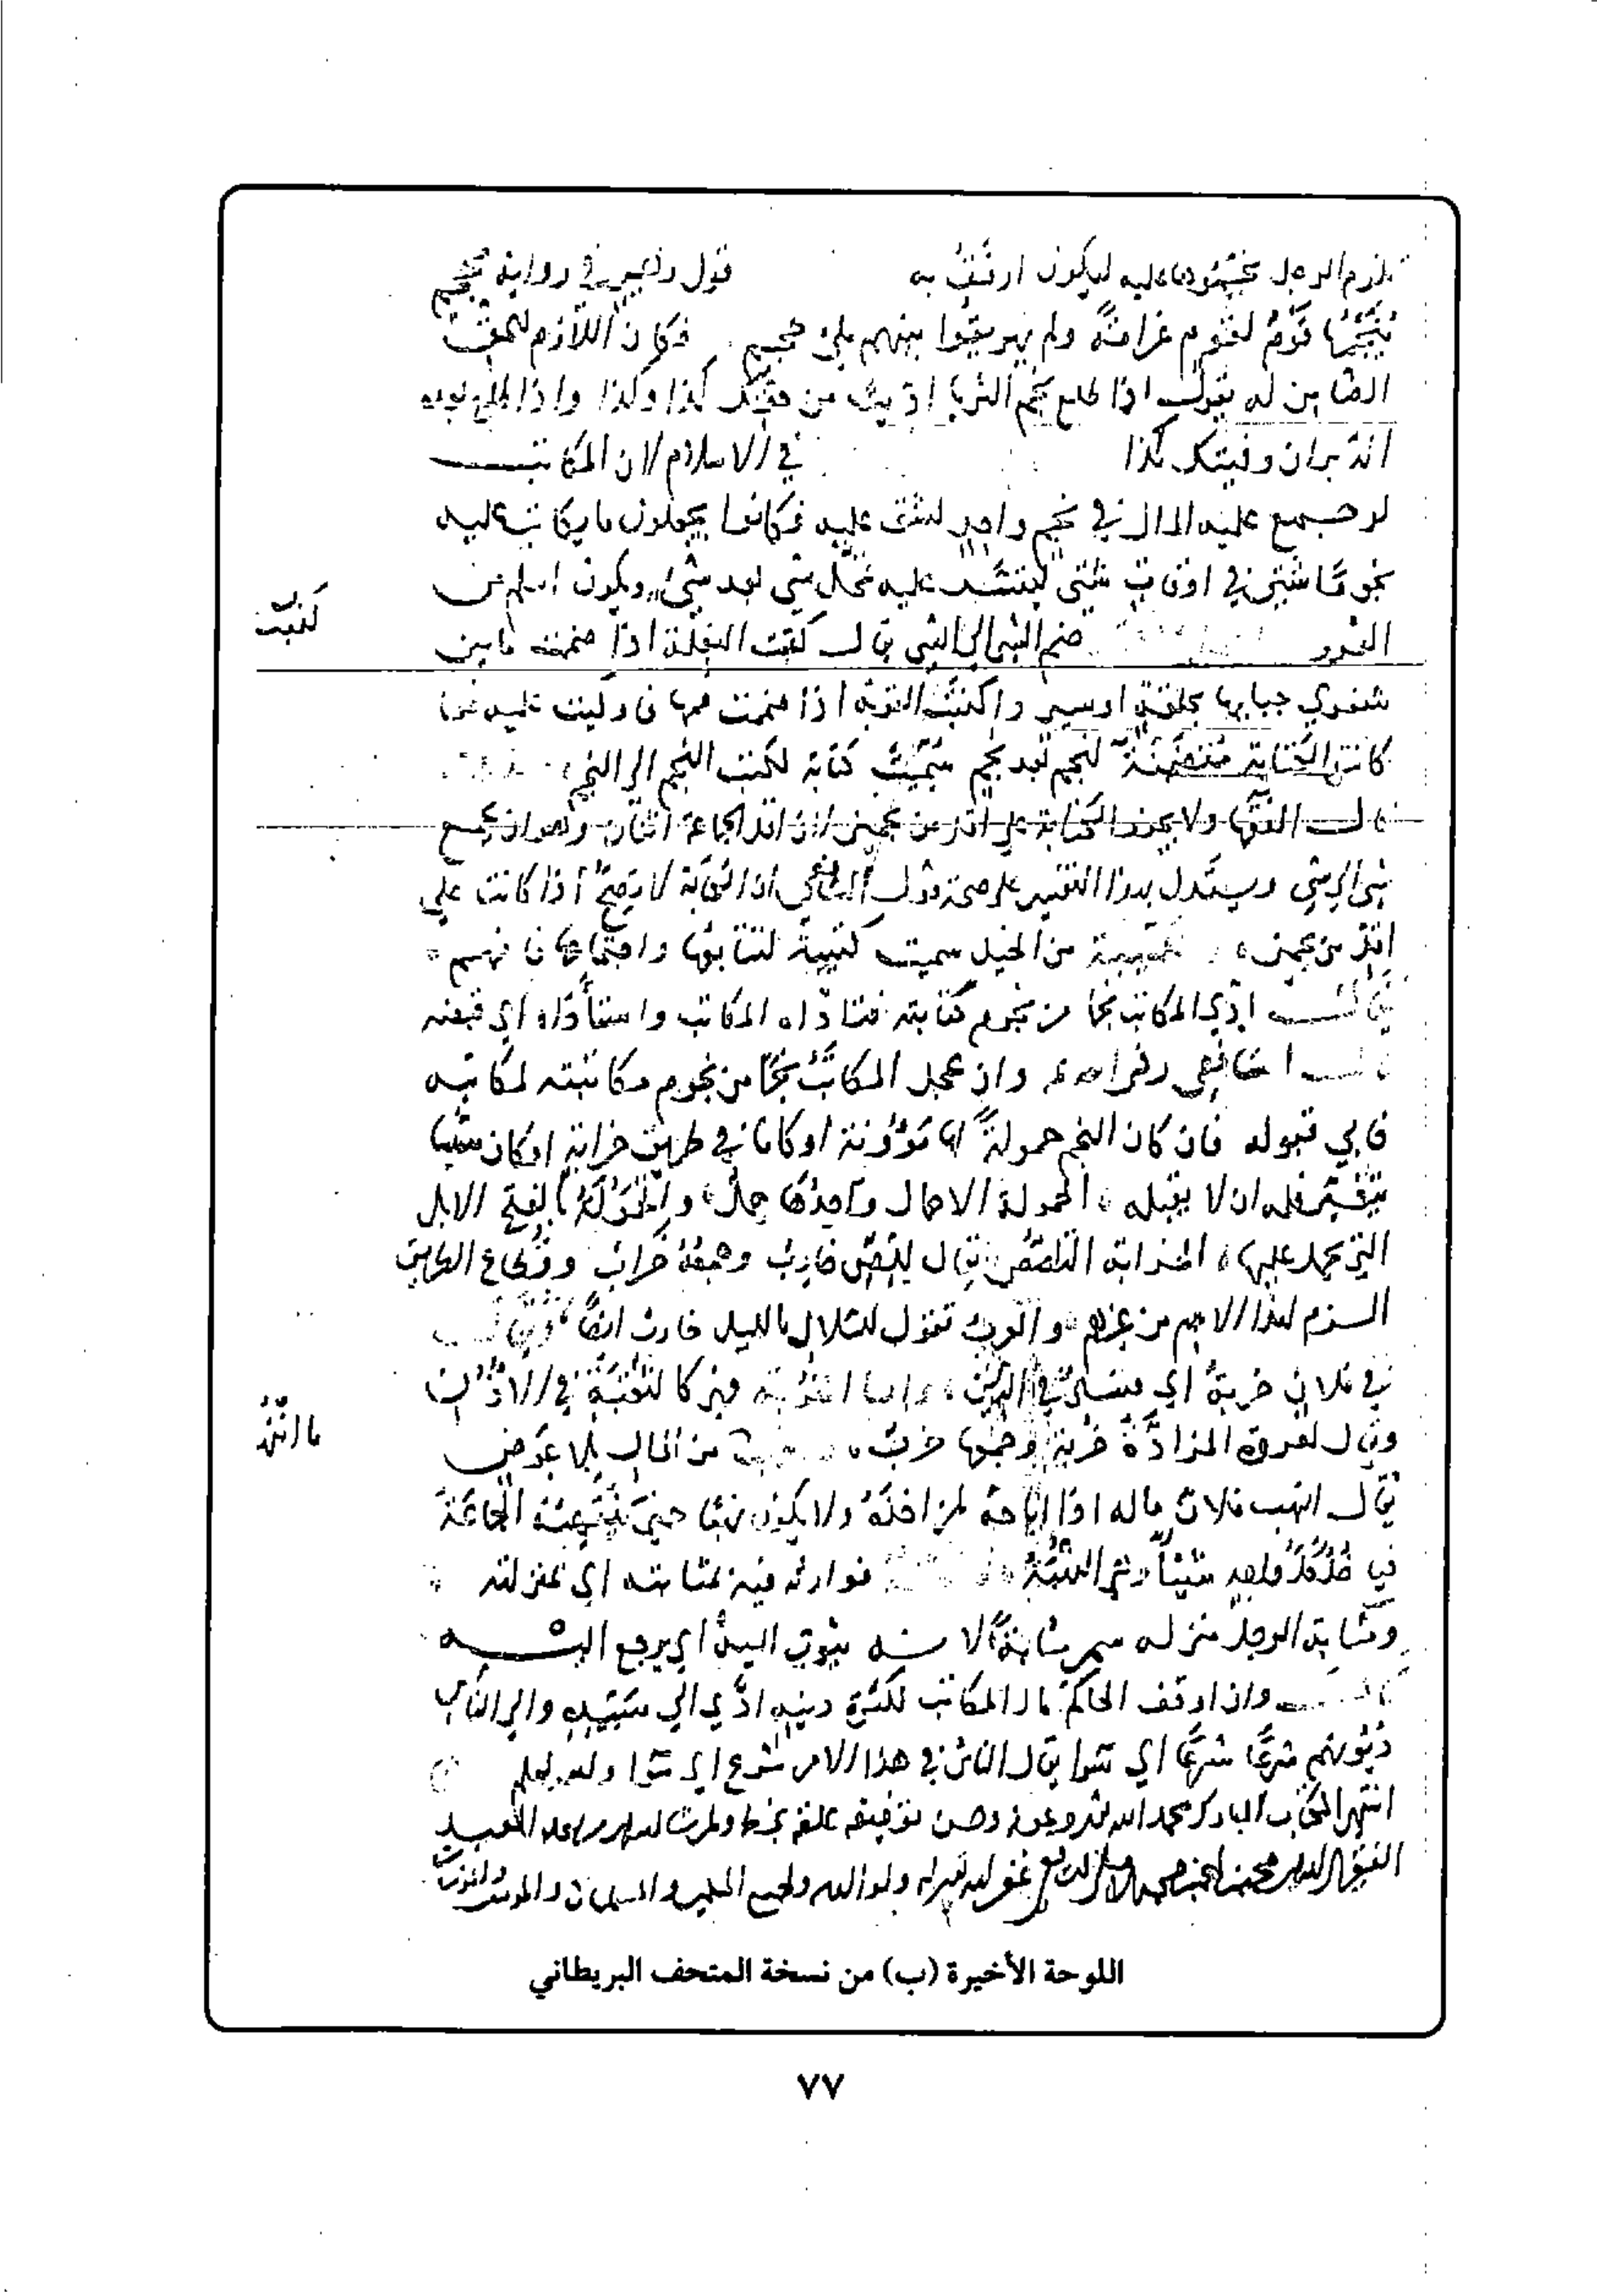 يلزم الرجل نجوما عليه ليكون ارفق به قول زهير في روايه نجم
يُنَجِّمُها قَوْمٌ لقوم غرامةً ولم يهريقوا بينهم ملئ محجم فكان اللازم للحق
الضامن له يقول اذا طلع نجم الثريا اديت من حقك كذا وكذا واذا طلع بعده
الدبران وفيتك كذا في الاسلام لان المكاتب
لو جمع عليه المال في نجم واحد لشق عليه فكانوا يجعلون ما يكاتب عليه
نجوما شتى في اوقات شتى ليتسر عليه محل شي بعد شئ ويكون اسلم من
الغرر ضم الشي الى الشي يقال كتبت البغلة اذا ضممت ما بين
كتبت
شفري حيائها بحلقة او سير واكتبت القربة اذا ضممت فمها فاوكيت عليه فلما
كانت الكتابة متضمنة لنجم بعد نجم سُمِّيَت كتابة لكتب النجم الى النجم
قال الفقها ولا يجوز الكتابة على اقل من نجمين لان اقل الجماعة اثنان وهو ان يجمع
شي الى شي ويستدل بهذا التفسير على صحة قول الشافعي ان الكتابة لا تصح اذا كانت على
اقل من نجمين من الخيل سميت كتيبة لتتابعها واجتماعها
يقال ادي المكاتب نجما من نجوم كتابته فتاداه المكاتب واستأداه اي قبضه
قال الشافعي وان عجل المكاتب نجما من نجوم مكاتبته لمكاتبه
فابى قبوله فان كان النجم حمولةً لها مَؤُونة او كانا في طريق خرابةٍ او كان شيئا
يتغير فله ان لا يقبله الحمولة الاحمال واحدها حمل والحَمُولَة بالفتح الابل
التي يحمل عليها الخرابة التلصص يقال للص خارب وجمعه خراب وقطاع الطريق
الزم لهذا الاسم من غيرهم والعرب تقول للسلال بالليل خارب ايضا ويقال
في فلان خربة اي فساد في الدين واما الخربة فهي كالثقبة في الاذن
ما النهب
ويقال لعروة المزادة خربة وجمعها خرب من المال بلا عوض
يقال انهب فلان ماله اذا اباحه لمن اخذه ولا يكون نهبا حتى تنتهبه الجماعة
فياخذ كل واحد شيئا وهي النهبة فوارثه فيه بمثابته اي بمنزلته
ومثابة الرجل منزله سمي مثابة لانه يثوب اليه اي يرجع اليه
قال وان اوقف الحاكم مال المكاتب لكثرة دينه ادي الى سيده والى الناس
ديونهم شرعا شرعا اي سوا يقال الناس في هذا الامر شرع اي سوا والله يعلم
انتهى الكتاب المبارك بحمد الله وعونه وحسن توفيقه العبد
الفقير الى الله غفر الله له ولوالديه ولجميع المسلمين والمسلمات والمومنين والمومنات
اللوحة الأخيرة (ب) من نسخة المتحف البريطاني
٧٧